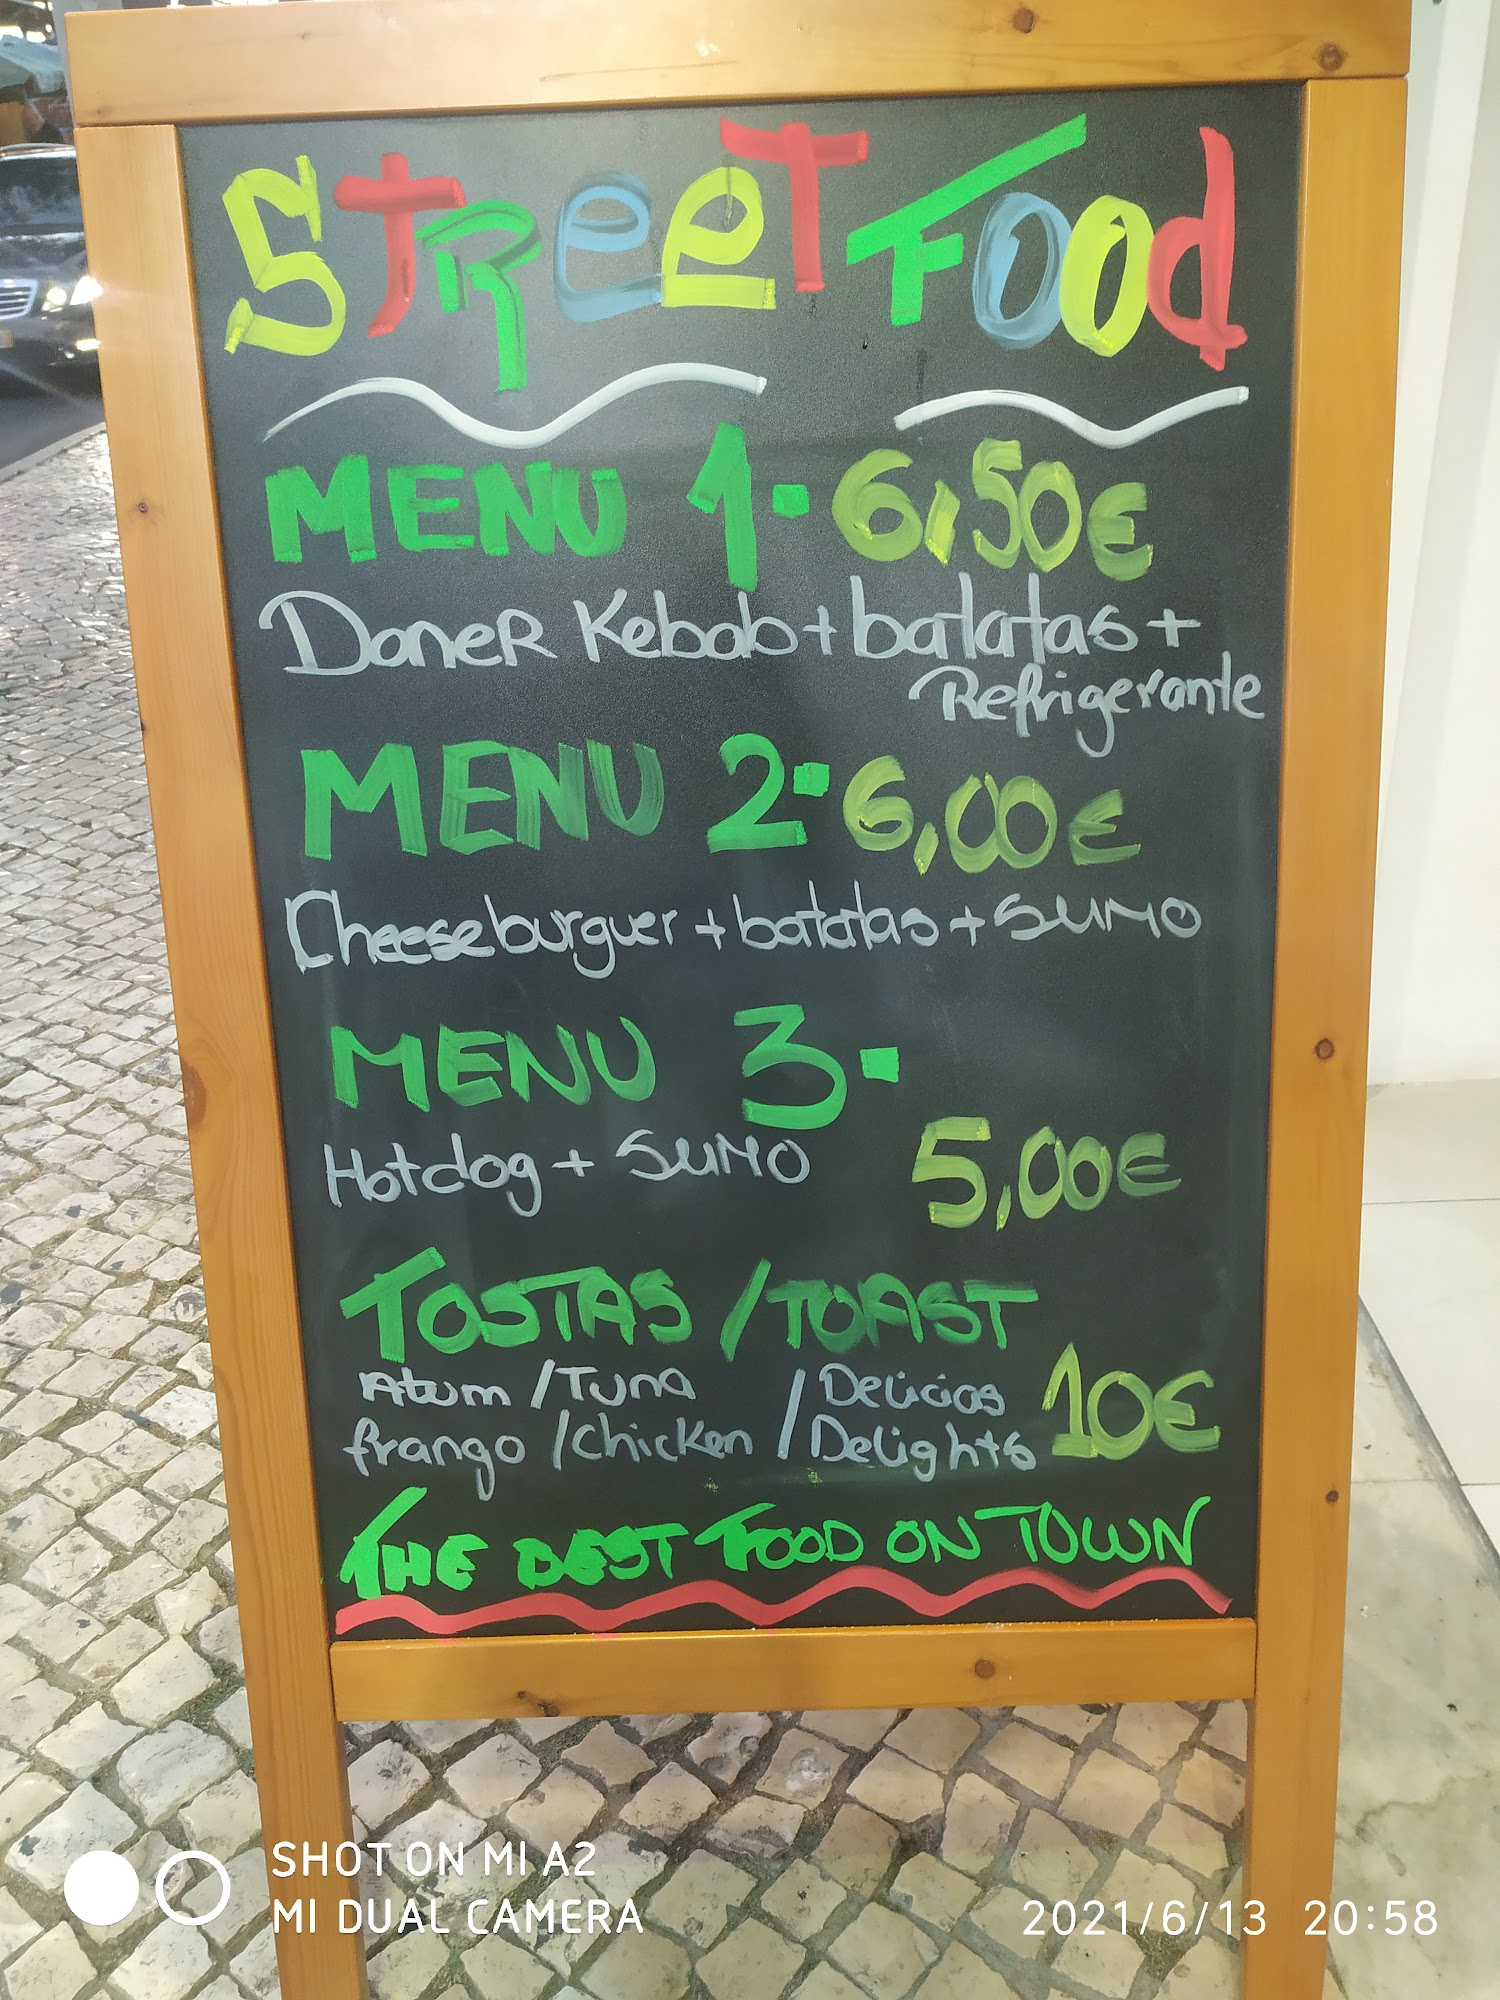 Street Food
MENU 1. 6,50€
Doner Kebab + batatas +
Refrigerante
MENU 2. 6,00€
Cheeseburguer + batatas + SUMO
MENU 3.
Hotdog + SUMO
5,00€
TOSTAS / TOAST
Atum / Tuna / Delicias
frango / Chicken / Delights
10€
THE BEST FOOD ON TOWN
SHOT ON MI A2
MI DUAL CAMERA
2021/6/13 20:58